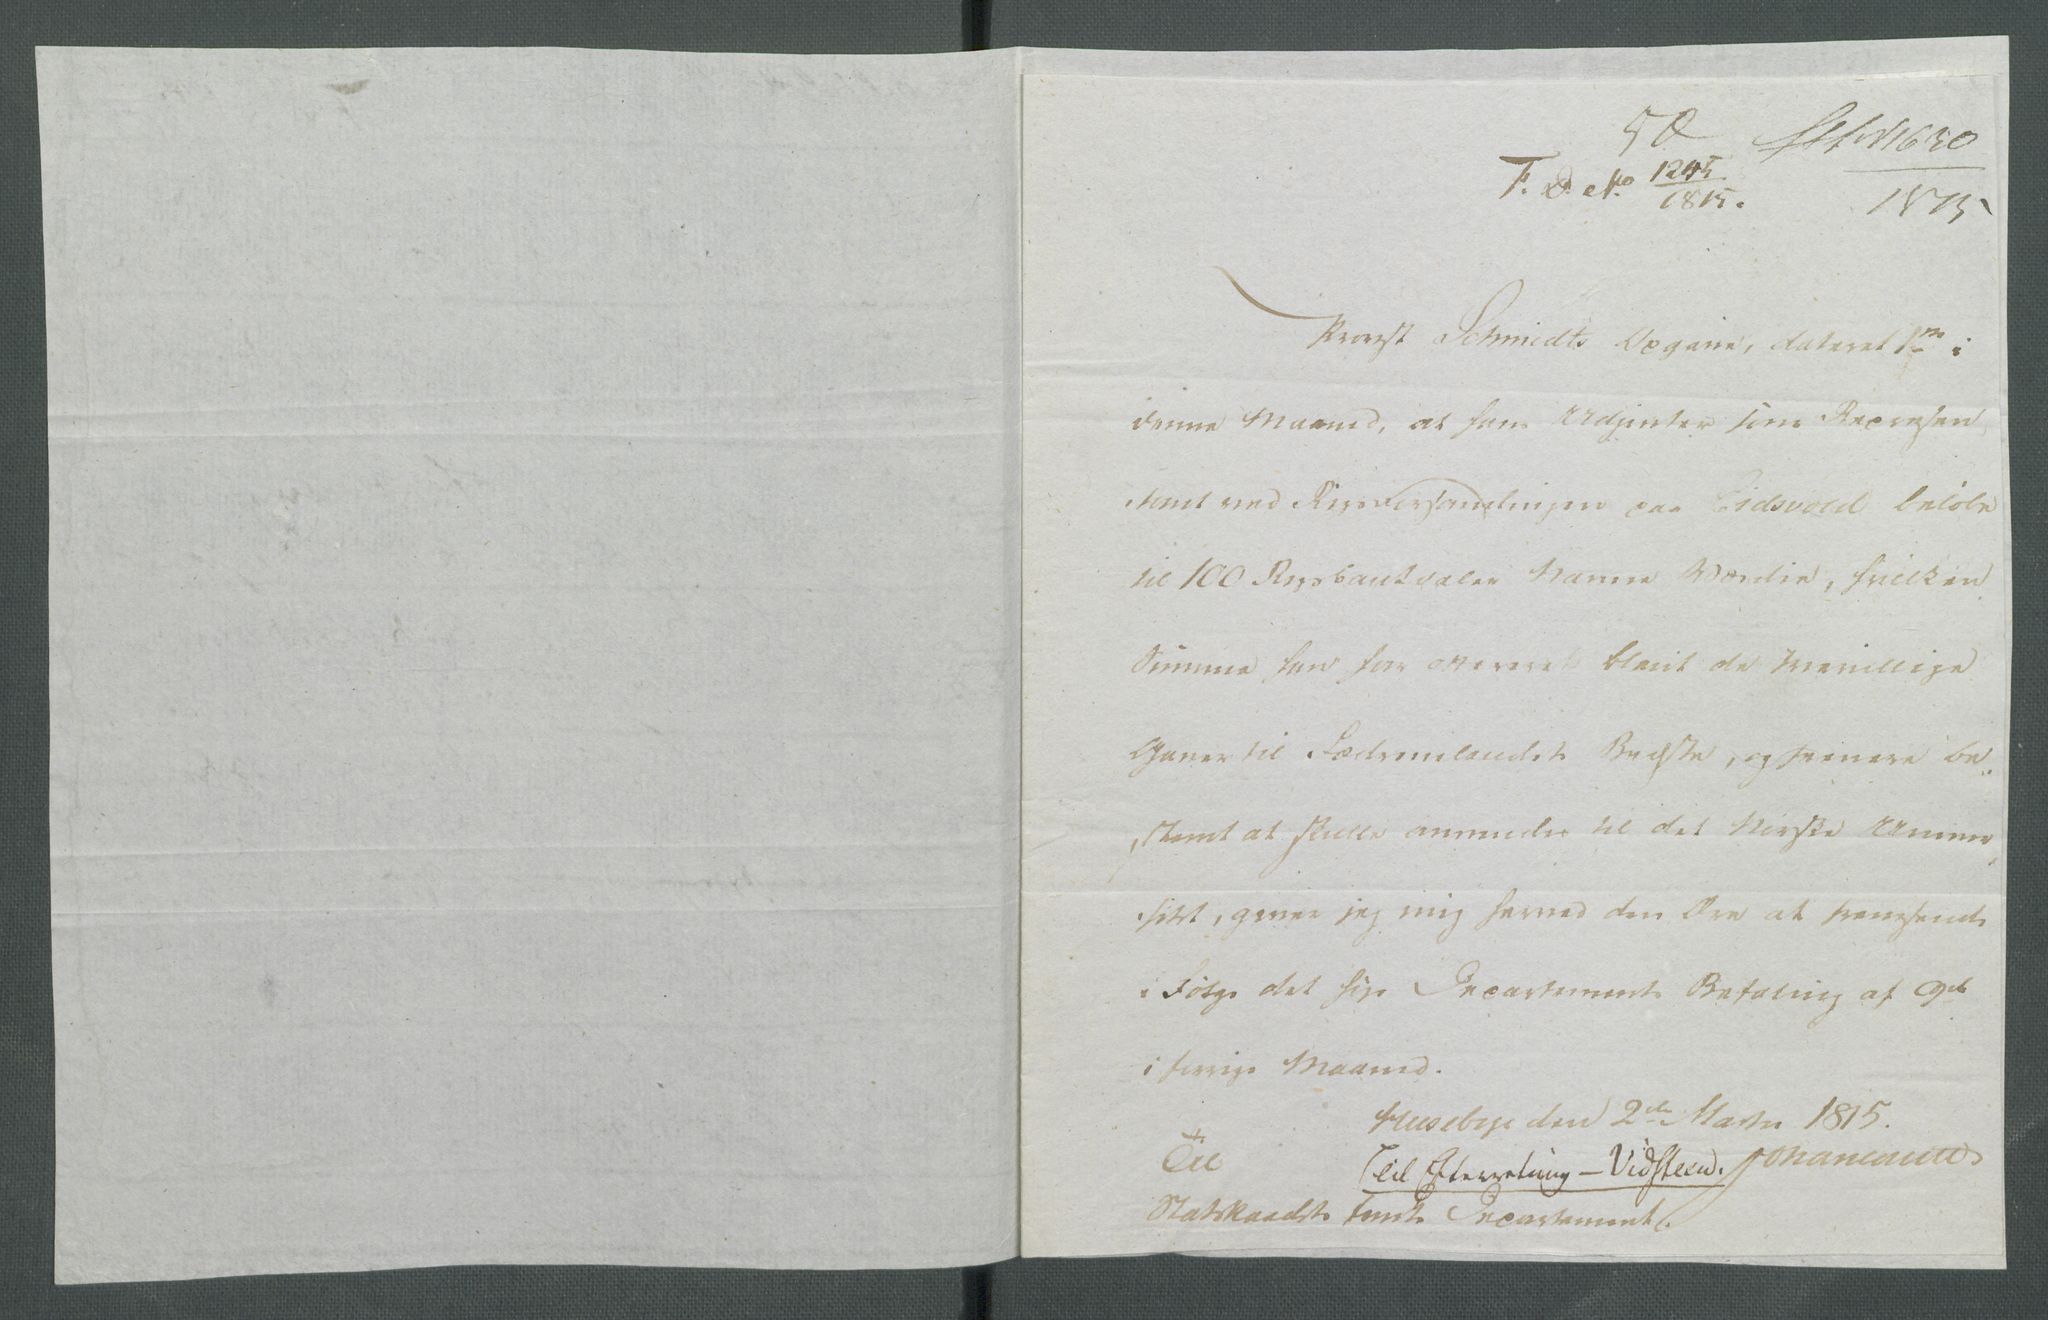 5 Q
1630
1815
F. D. No 1245
1815.
Provst Schmidts Opgave, dateret 1ste i
denne Maaned, at hans Udgivter som Repræsen
tant ved Rigsforsamlingen paa Eidsvold beløbe
til 100 Rigsbankdaler Navne Værdie, hvilken
Summe han har offereret blant de frievillige
Gaver til Fædrenelandets Bedste, og senere be
stemt at skulle anvendes til det Norske Univer
sitet, giver jeg mig herved den Ære at fremsende
i Følge det høie Departements Befaling af 9de
i forrige Maaned.
Huseby den 2den Marts 1815.
Til
Til Efterretning — Vidsteen.
Statsraadets Femte Departement.